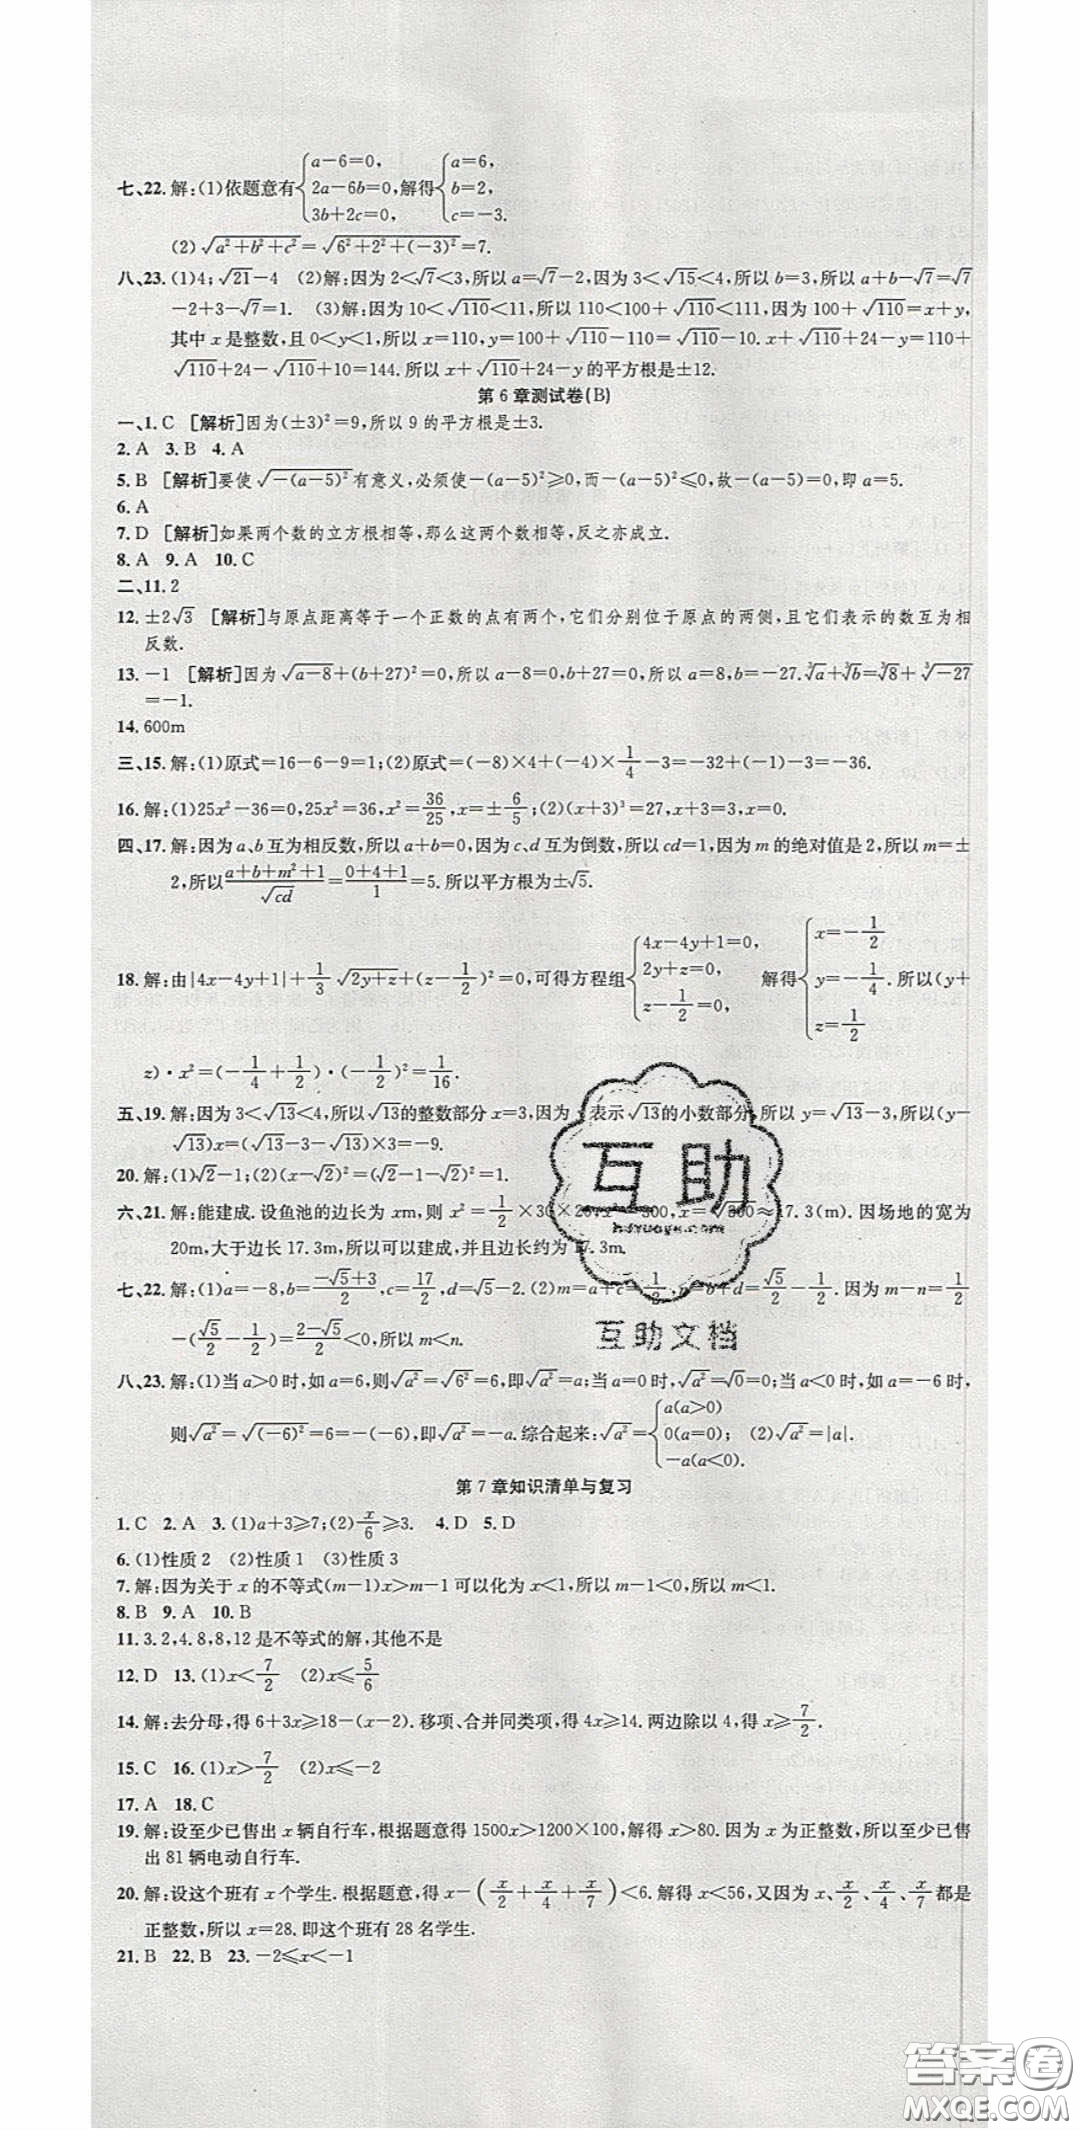 七、22. 解:(1)依题意有{a-6=0, 2a-6b=0, 3b+2c=0, 解得{a=6, b=2, c=-3.
(2)√(a²+b²+c²)=√(6²+2²+(-3)²)=7.
八、23. (1)4;√21-4 (2)解:因为 2<√7<3,所以 a=√7-2,因为 3<√15<4,所以 b=3,所以 a+b-√7=√7
-2+3-√7=1. (3)解:因为 10<√110<11,所以 110<100+√110<111,因为 100+√110=x+y,
其中 x 是整数,且 0<y<1,所以 x=110,y=100+√110-110=√110-10. x+√110+24-y=110+
√110+24-√110+10=144. 所以 x+√110+24-y 的平方根是±12.
第 6 章测试卷(B)
一、1. C [解析]因为(±3)²=9,所以 9 的平方根是±3.
2. A 3. B 4. A
5. B [解析]要使√(-(a-5)²)有意义,必须使-(a-5)²⩾0,而-(a-5)²⩽0,故-(a-5)=0,即 a=5.
6. A
7. D [解析]如果两个数的立方根相等,那么这两个数相等,反之亦成立.
8. A 9. A 10. C
二、11. 2
12. ±2√3 [解析]与原点距离等于一个正数的点有两个,它们分别位于原点的两侧,且它们表示的数互为相
反数.
13. -1 [解析]因为√(a-8)+(b+27)²=0,所以 a-8=0,b+27=0,所以 a=8,b=-27.∛a+∛b=∛8+∛(-27)
=-1.
14. 600m
三、15. 解:(1)原式=16-6-9=1;(2)原式=(-8)×4+(-4)×1/4-3=-32+(-1)-3=-36.
16. 解:(1)25x²-36=0,25x²=36,x²=36/25,x=±6/5;(2)(x+3)³=27,x+3=3,x=0.
四、17. 解:因为 a、b 互为相反数,所以 a+b=0,因为 c、d 互为倒数,所以 cd=1,因为 m 的绝对值是 2,所以 m=±
2,所以(a+b+m²+1)/√(cd)=(0+4+1)/1=5. 所以平方根为±√5.
18. 解:由|4x-4y+1|+1/3√(2y+z)+(z-1/2)²=0,可得方程组{4x-4y+1=0, 2y+z=0, z-1/2=0, 解得{x=-1/2 y=-1/4 z=1/2. 所以(y+
z)·x²=(-1/4+1/2)·(-1/2)²=1/16.
五、19. 解:因为 3<√13<4,所以√13的整数部分 x=3,因为 y 表示√13的小数部分,所以 y=√13-3,所以(y-
√13)x=(√13-3-√13)×3=-9.
20. 解:(1)√2-1;(2)(x-√2)²=(√2-1-√2)²=1.
六、21. 解:能建成. 设鱼池的边长为 xm,则 x²=1/2×30×20,x²=300,x=√300≈17.3(m). 因场地的宽为
20m,大于边长 17.3m,所以可以建成,并且边长约为 17.3m.
七、22. 解:(1)a=-8,b=(-√5+3)/2,c=17/2,d=√5-2. (2)m=a+c=1/2,n=b+d=√5/2-1/2. 因为 m-n=1/2
-(√5/2-1/2)=(2-√5)/2<0,所以 m<n.
八、23. 解:(1)当 a>0 时,如 a=6,则√a²=√6²=6,即√a²=a;当 a=0 时,√a²=√0=0;当 a<0 时,如 a=-6 时,
则√a²=√(-6)²=6=-(-6),即√a²=-a. 综合起来:√a²={a(a>0) 0(a=0); -a(a<0). (2)√a²=|a|.
第 7 章知识清单与复习
1. C 2. A 3. (1)a+3⩾7;(2)x/6⩾3. 4. D 5. D
6. (1)性质 2 (2)性质 1 (3)性质 3
7. 解:因为关于 x 的不等式(m-1)x>m-1 可以化为 x<1,所以 m-1<0,所以 m<1.
8. B 9. A 10. B
11. 3.2,4.8,8,12 是不等式的解,其他不是
12. D 13. (1)x<7/2 (2)x⩽5/6
14. 解:去分母,得 6+3x⩾18-(x-2). 移项、合并同类项,得 4x⩾14. 两边除以 4,得 x⩾7/2.
15. C 16. (1)x>7/2 (2)x⩽-2
17. A 18. C
19. 解:设至少已售出 x 辆自行车,根据题意得 1500x>1200×100,解得 x>80. 因为 x 为正整数,所以至少已售
出 81 辆电动自行车.
20. 解:设这个班有 x 个学生. 根据题意,得 x-(x/2+x/4+x/7)<6. 解得 x<56,又因为 x、x/2、x/4、x/7都是
正整数,所以 x=28. 即这个班有 28 名学生.
21. B 22. B 23. -2⩽x<-1
互助
hdzuoye.com
互助文档
答案圈
MXQE.COM